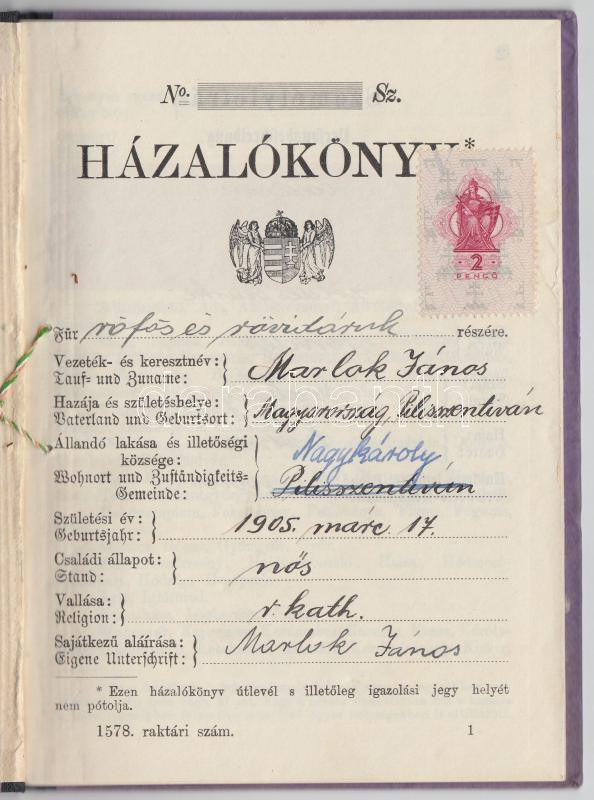 No. Sz.
HÁZALÓKÖNYV*
2
PENGŐ
Für rőfős és rövidáruk részére.
Vezeték- és keresztnév:
Tauf- und Zuname:
Marlok János
Hazája és születéshelye:
Vaterland und Geburtsort:
Magyarország, Pilisszentiván
Állandó lakása és illetőségi
községe:
Wohnort und Zuständigkeits-
Gemeinde:
Nagykároly
Pilisszentiván
Születési év:
Geburtsjahr:
1905. márc. 17.
Családi állapot:
Stand:
nős
Vallása:
Religion:
r. kath.
Sajátkezű aláírása:
Eigene Unterschrift:
Marlok János
* Ezen házalókönyv útlevél s illetőleg igazolási jegy helyét
nem pótolja.
1578. raktári szám. 1
darabanth